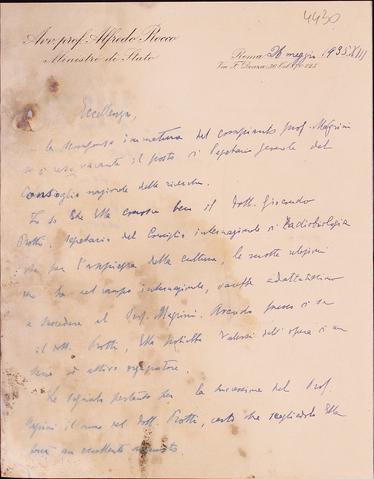 4430
Avv. prof. Alfredo Rocco
Ministro di Stato
Roma 26 maggio 1935.XIII
Via
Eccellenza,
la scomparsa immatura del compianto prof. Magrini
ha reso vacante il posto di Segretario generale del
Consiglio nazionale delle ricerche.
Io so che Ella conosce bene il Dott. Giocondo
Protti, Segretario del Consiglio internazionale di Radiobiologia
che per l'ampiezza della cultura, le molte relazioni
che ha nel campo internazionale, sarebbe adattatissimo
a succedere al Prof. Magrini. Avendo presso di sè
il dott. Protti, Ella potrebbe valersi dell'opera di un
ed attivo organizzatore.
Le segnalo pertanto per la successione del Prof.
Magrini il nome del Dott. Protti, certo che scegliendolo Ella
farà un eccellente acquisto.